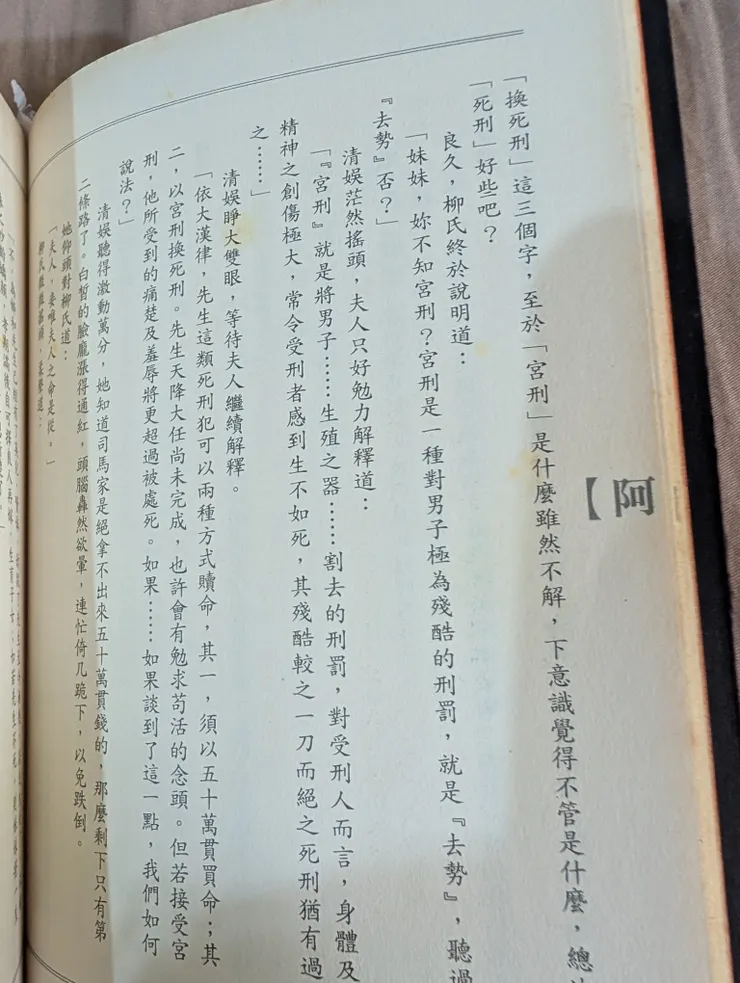 阿
【
「換死刑」這三個字，至於「宮刑」是什麼雖然不解，下意識覺得不管是什麼，總
「死刑」好些吧？
良久，柳氏終於說明道：
「妹妹，妳不知宮刑？宮刑是一種對男子極為殘酷的刑罰，就是『去勢』，聽過
『去勢』否？」
清娛茫然搖頭，夫人只好勉力解釋道：
「『宮刑』就是將男子……生殖之器……割去的刑罰，對受刑人而言，身體及
精神之創傷極大，常令受刑者感到生不如死，其殘酷較之一刀而絕之死刑猶有過
之……」
清娛睜大雙眼，等待夫人繼續解釋。
「依大漢律，先生這類死刑犯可以兩種方式贖命，其一，須以五十萬貫買命；其
二，以宮刑換死刑。先生天降大任尚未完成，也許會有勉求苟活的念頭。但若接受宮
刑，他所受到的痛楚及羞辱將更超過被處死。如果……如果談到了這一點，我們如何
說法？」
清娛聽得激動萬分，她知道司馬家是絕拿不出來五十萬貫錢的，那麼剩下只有第
二條路了。白皙的臉龐漲得通紅，頭腦轟然欲暈，連忙倚几跪下，以免跌倒。
她仰頭對柳氏道：
「夫人，妾唯夫人之命是從。」